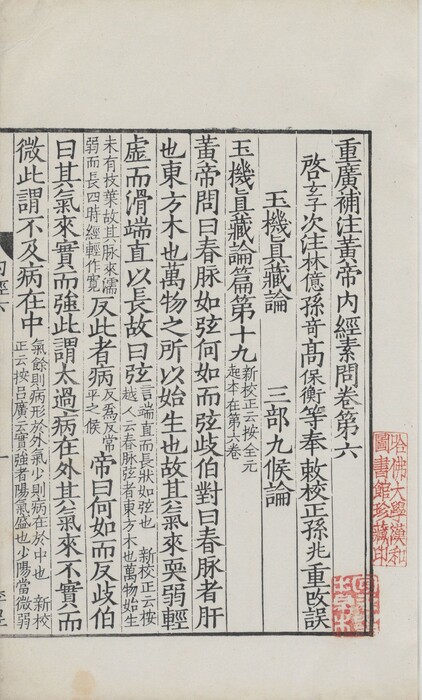 重廣補注黃帝內經素問卷第六
啓玄子次注林億孫竒高保衡等奉敕校正孫兆重改誤
玉機眞藏論　三部九候論
玉機眞藏論篇第十九新校正云按全元起本在第六卷
黃帝問曰春脉如弦何如而弦歧伯對曰春脉者肝
也東方木也萬物之所以始生也故其氣來耎弱輕
虛而滑端直以長故曰弦言端直而長狀如弦也　新校正云按越人云春脉弦者東方木也萬物始生
未有枝葉故其脉來濡弱而長四時經輕作寬反此者病反爲反常平之候帝曰何如而反歧伯
曰其氣來實而強此謂太過病在外其氣來不實而
微此謂不及病在中氣餘則病形於外氣少則病在於中也　新校正云按呂廣云實強者陽氣盛也少陽當微弱
哈佛大學漢和圖書館珍藏印